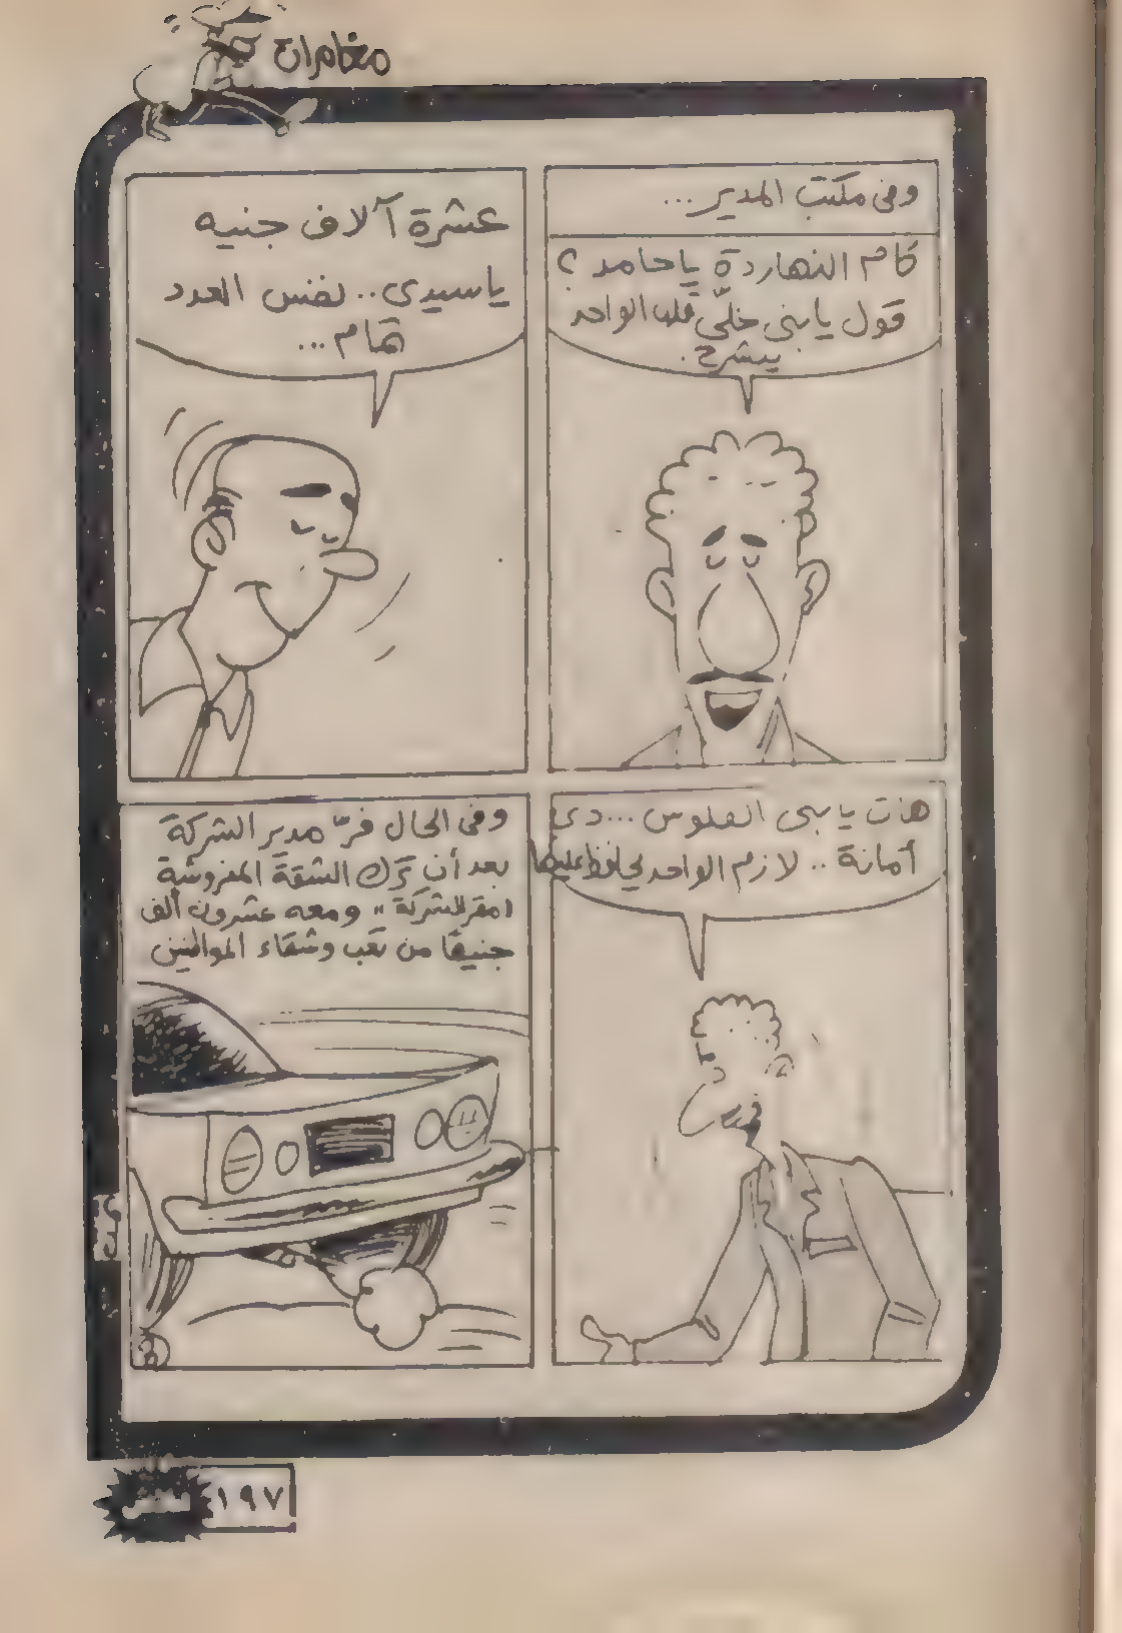 مغامرات
وفى مكتب المدير...
كام النهاردة ياحامد ؟
قول يابنى خلّى قلب الواحد
ينشرح.
عشرة آلاف جنيه
ياسيدى.. نفس العدد
تمام...
هات يابنى الفلوس...دى
أمانة.. لازم الواحد يحافظ عليها
وفى الحال فرّ مدير الشركة
بعد أن ترك الشقة المفروشة
"مقر الشركة" ومعه عشرون ألف
جنيهًا من تعب وشقاء المواطنين
١٩٧